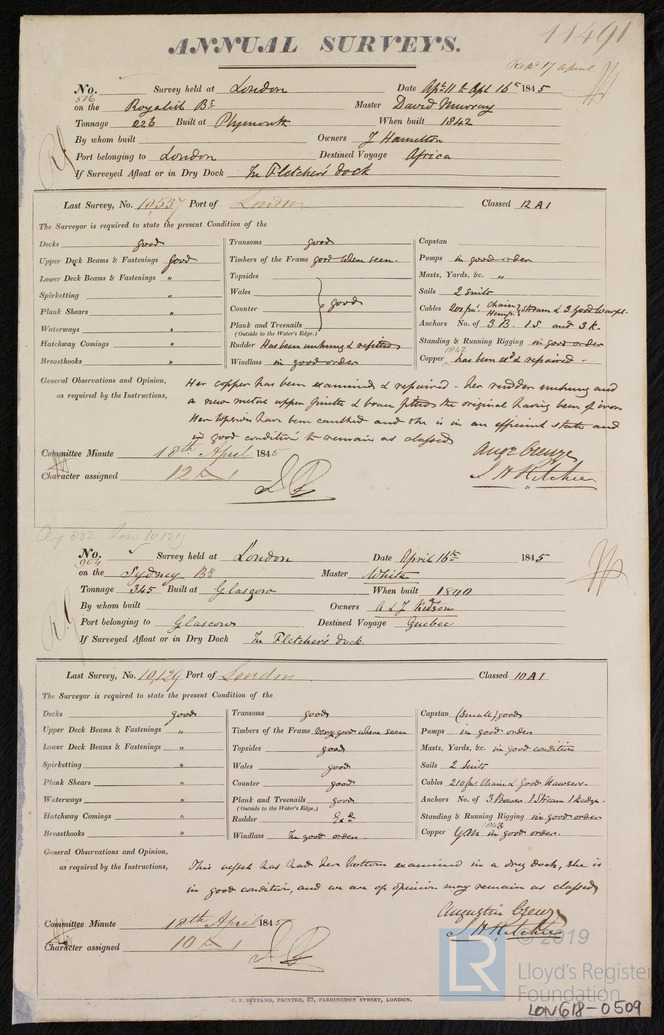 11491
ANNUAL SURVEYS.
Rep. 17 April
No. 516 Survey held at London Date Ap. 11 & Apl 16th 1845
on the Royalist Bk Master David Murray
Tonnage 226 Built at Plymouth When built 1842
By whom built Owners J Hamilton
Port belonging to London Destined Voyage Africa
If Surveyed Afloat or in Dry Dock In Fletcher's dock
Last Survey, No. 10,557 Port of London Classed 12 A 1
The Surveyor is required to state the present Condition of the
Decks good Transoms good Capstan
Upper Deck Beams & Fastenings good Timbers of the Frame good when seen. Pumps in good order
Lower Deck Beams & Fastenings " Topsides Masts, Yards, &c. "
Spirketting " Wales Sails 2 suits
Plank Shears " Counter good Cables Chain Hemp, Stream & 3 good warps.
Waterways " Plank and Treenails Anchors No. of 3 B. 1 S. and 3 K.
(Outside to the Water's Edge.)
Hatchway Comings " Rudder Has been unhung & refitted Standing & Running Rigging in good order
Breasthooks " Windlass in good order Copper 1842 has been exd & repaired -
General Observations and Opinion,
as required by the Instructions,
Her copper has been examined & repaired - her rudder unhung and
a new metal upper pintle & brace fitted the original having been of iron
Her topsides have been caulked and she is in an efficient state and
in good condition to remain as classed
Committee Minute 18th April 1845
Character assigned 12 A 1
Augn Creuze
J H Ritchie
Lon 10129
No. 904 Survey held at London Date April 16th 1845
on the Sydney Bk Master White
Tonnage 345 Built at Glasgow When built 1840
By whom built Owners A & J Kidson
Port belonging to Glasgow Destined Voyage Quebec
If Surveyed Afloat or in Dry Dock In Fletcher's dock
Last Survey, No. 10,129 Port of London Classed 10 A 1
The Surveyor is required to state the present Condition of the
Decks good Transoms good Capstan (Small) good
Upper Deck Beams & Fastenings " Timbers of the Frame very good where seen Pumps in good order
Lower Deck Beams & Fastenings " Topsides good Masts, Yards, &c. in good condition
Spirketting " Wales good Sails 2 suits
Plank Shears " Counter good Cables 210 fms Chain & good Hawsers.
Waterways " Plank and Treenails good Anchors No. of 3 Bower 1 Stream 1 Kedge.
(Outside to the Water's Edge.)
Hatchway Comings " Rudder Standing & Running Rigging in good order
Breasthooks " Windlass In good order. Copper YM 1843 in good order.
General Observations and Opinion,
as required by the Instructions,
This vessel has had her bottom examined in a dry dock, she is
in good condition, and we are of opinion may remain as classed
Committee Minute 18th April 1845
Character assigned 10 A 1
Augustin Creuze
J H Ritchie
© 2019
LR Lloyd's Register
Foundation
LON618-0509